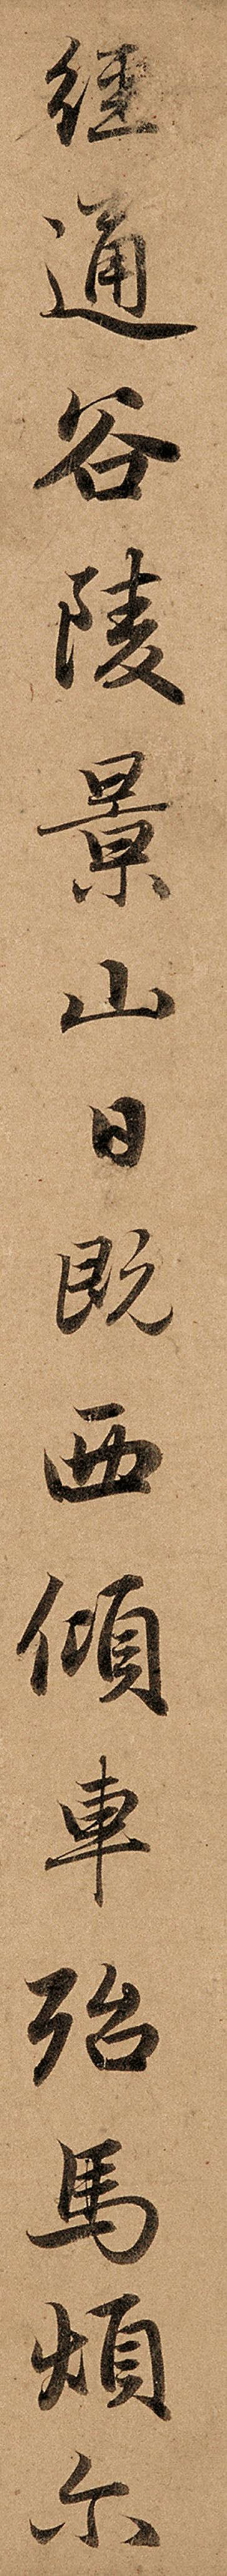 經通谷陵景山日既西傾車殆馬煩尓